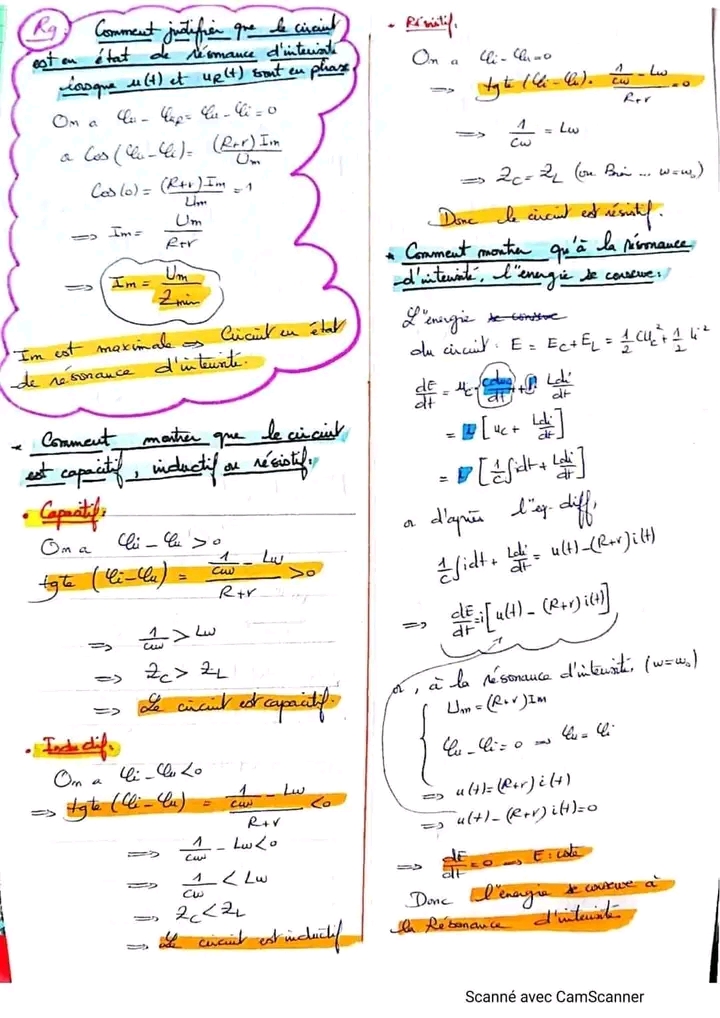 Rq
Comment justifier que le circuit
est en état de résonance d'intensité
lorsque u(t) et uR(t) sont en phase
On a φu - φuR = φu - φi = 0
or Cos(φu-φi) = (R+r)Im / Um
Cos(0) = (R+r)Im / Um = 1
=> Im = Um / R+r
=> Im = Um / Zmin
Im est maximale => Circuit en état
de résonance d'intensité.
* Comment montrer que le circuit
est capacitif, inductif ou résistif.
• Capacitif:
On a φi - φu > 0
tgte (φi-φu) = (1/Cw - Lw) / R+r > 0
=> 1/Cw > Lw
=> Zc > ZL
=> Le circuit est capacitif.
• Inductif.
On a φi - φu < 0
=> tgte (φi-φu) = (1/Cw - Lw) / R+r < 0
=> 1/Cw - Lw < 0
=> 1/Cw < Lw
=> Zc < ZL
=> Le circuit est inductif
• Résistif.
On a φi - φu = 0
=> tgte (φi-φu) = (1/Cw - Lw) / R+r = 0
=> 1/Cw = Lw
=> Zc = ZL (ou Bien ... w=w0)
Donc le circuit est résistif.
* Comment montrer qu'à la résonance
d'intensité, l'énergie se conserve:
L'énergie se conserve
du circuit: E = Ec + EL = 1/2 Cuc² + 1/2 Li²
dE/dt = uc . Cduc/dt + i Ldi/dt
= i [uc + Ldi/dt]
= i [1/C ∫idt + Ldi/dt]
or d'après l'eq-diff,
1/C ∫idt + Ldi/dt = u(t) - (R+r) i(t)
=> dE/dt = i [u(t) - (R+r) i(t)]
or, à la résonance d'intensité, (w=w0)
Um = (R+r) Im
φu - φi = 0 => φu = φi
=> u(t) = (R+r) i(t)
=> u(t) - (R+r) i(t) = 0
=> dE/dt = 0 => E: cste
Donc l'énergie se conserve à
la Résonance d'intensité
Scanné avec CamScanner